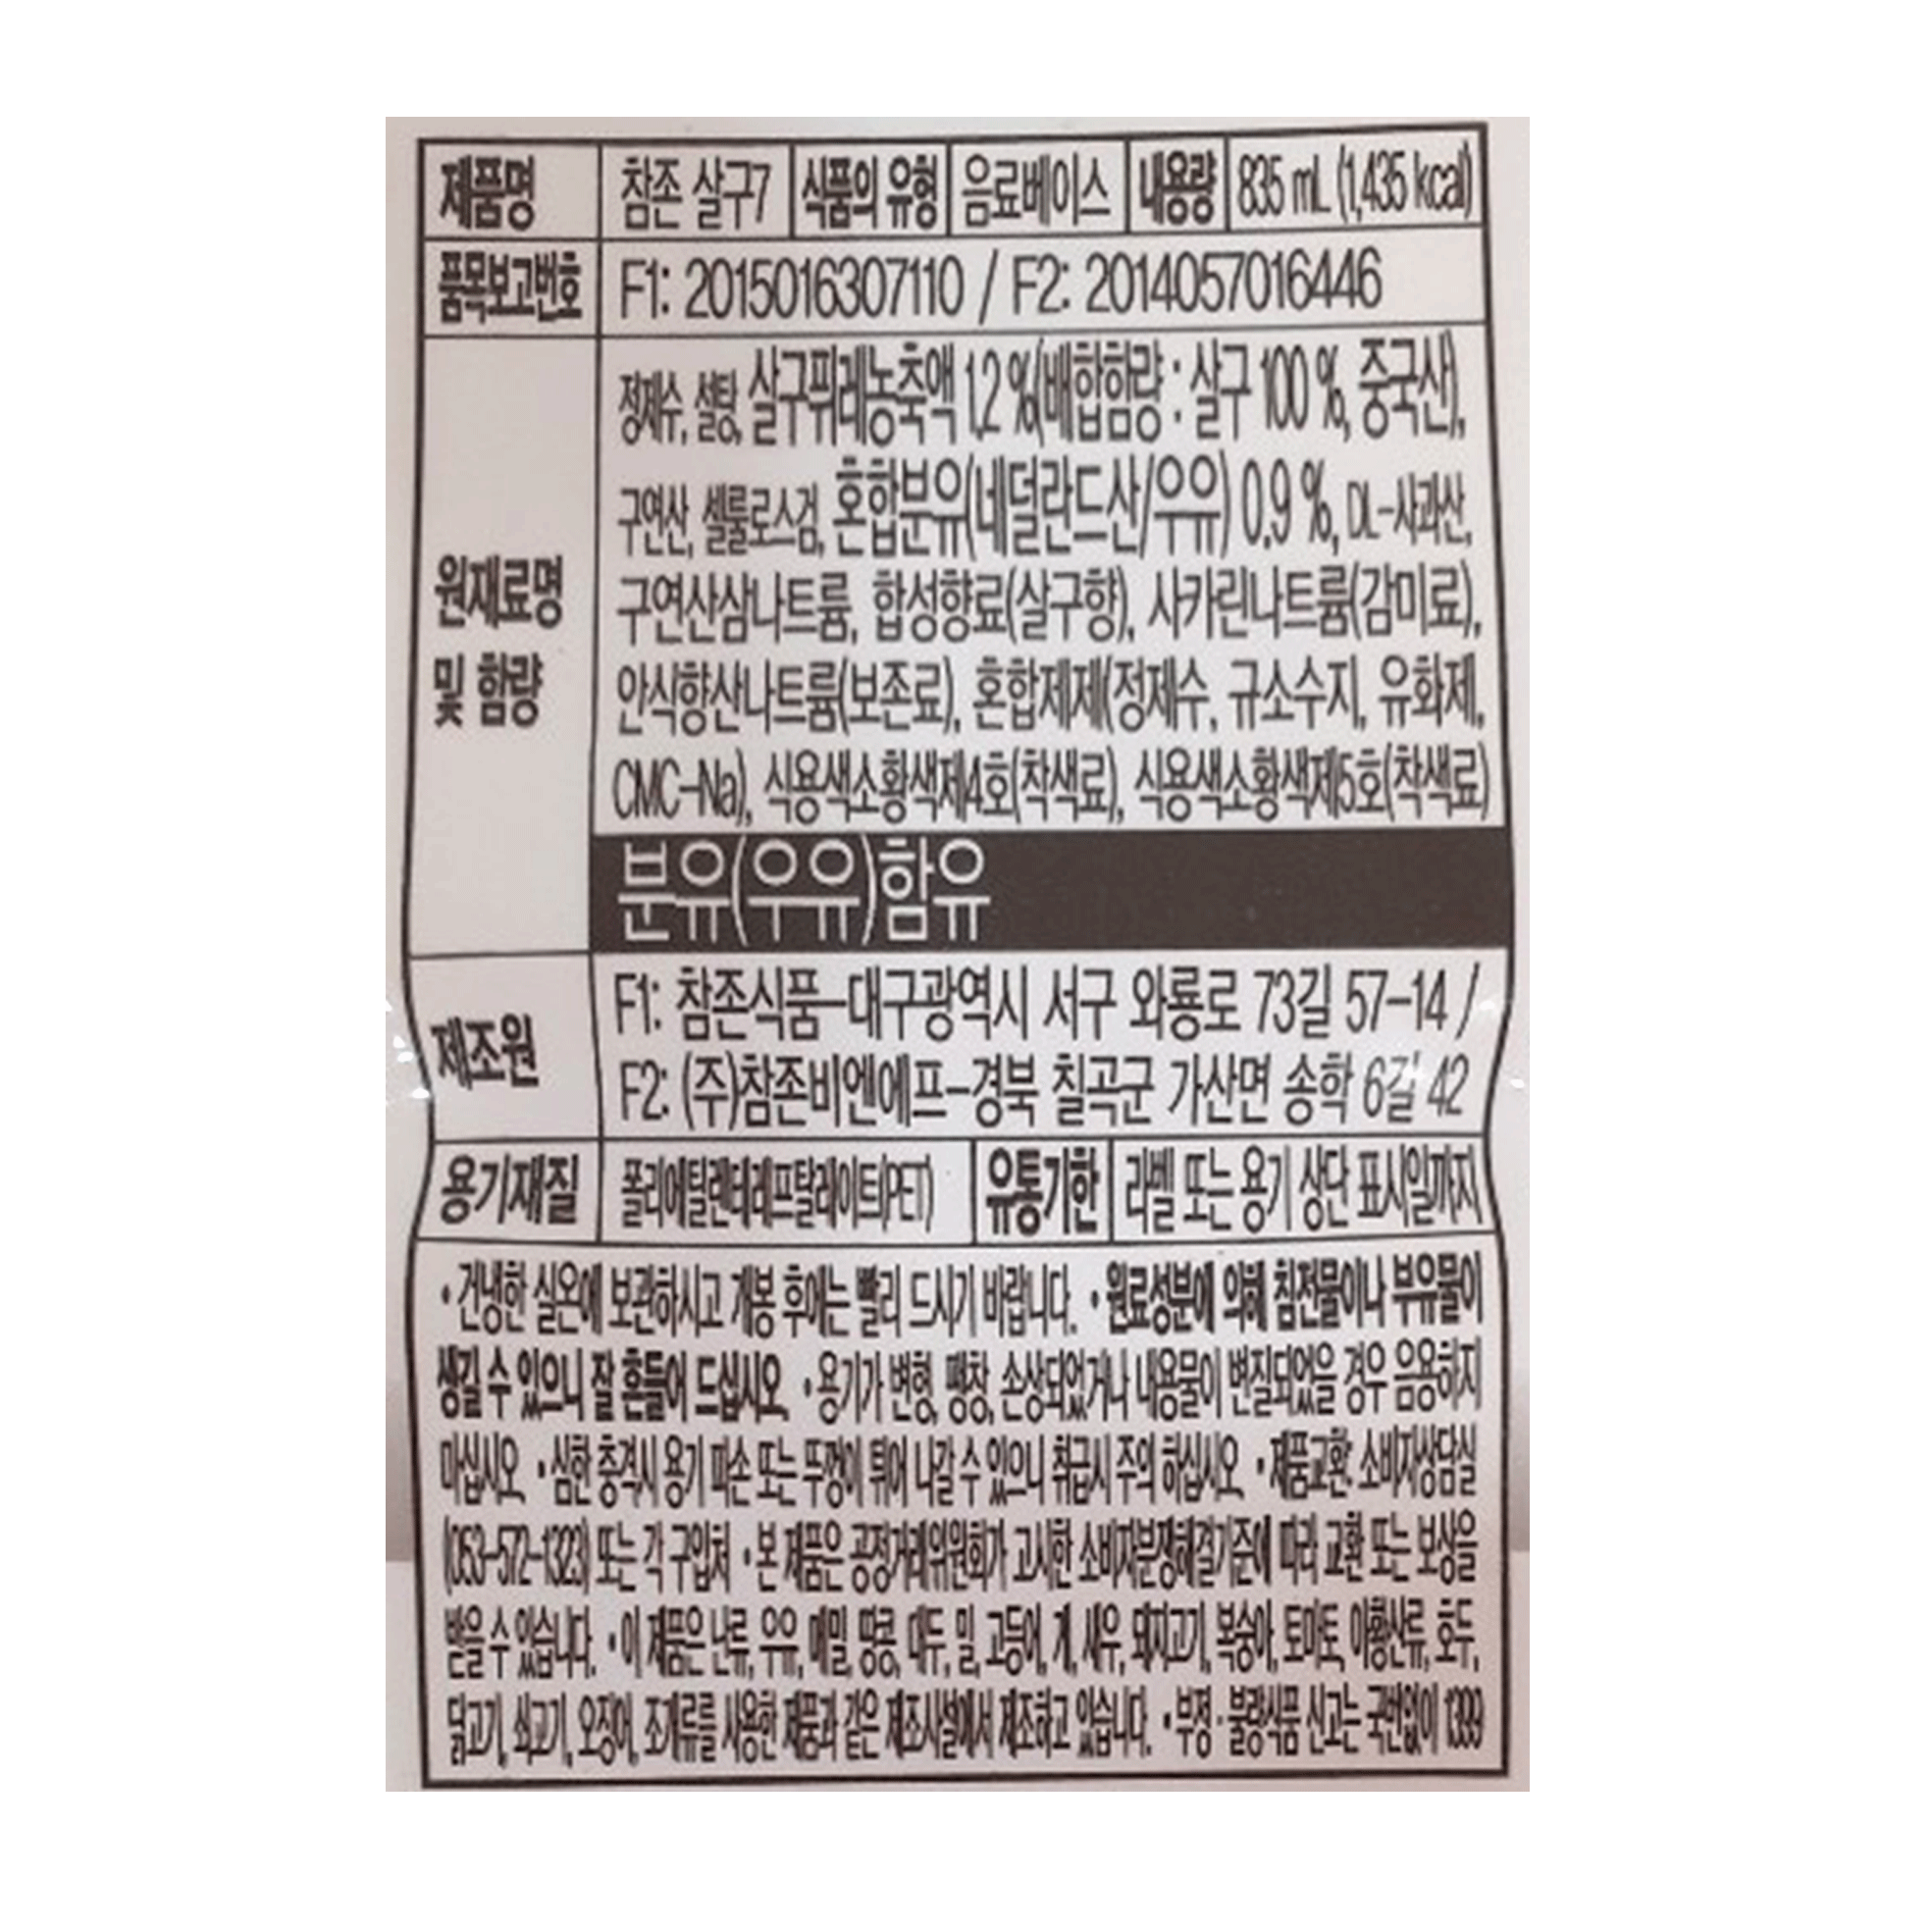 제품명 참존 살구7 식품의 유형 음료베이스 내용량 835 mL (1,435 kcal)
품목보고번호 F1: 2015016307110 / F2: 2014057016446
원재료명 및 함량
정제수, 설탕, 살구퓌레농축액 1.2 %(배합함량 : 살구 100 %, 중국산),
구연산, 셀룰로스검, 혼합분유(네덜란드산/우유) 0.9 %, DL-사과산,
구연산삼나트륨, 합성향료(살구향), 사카린나트륨(감미료),
안식향산나트륨(보존료), 혼합제제(정제수, 규소수지, 유화제,
CMC-Na), 식용색소황색제4호(착색료), 식용색소황색제5호(착색료)
분유(우유)함유
제조원
F1: 참존식품-대구광역시 서구 와룡로 73길 57-14 /
F2: (주)참존비엔에프-경북 칠곡군 가산면 송학 6길 42
용기재질 폴리에틸렌테레프탈레이트(PET) 유통기한 라벨 또는 용기 상단 표시일까지
• 건냉한 실온에 보관하시고 개봉 후에는 빨리 드시기 바랍니다. • 원료성분에 의해 침전물이나 부유물이
생길 수 있으니 잘 흔들어 드십시오. • 용기가 변형, 팽창, 손상되었거나 내용물이 변질되었을 경우 음용하지
마십시오. • 심한 충격시 용기 파손 또는 뚜껑이 튀어 나갈 수 있으니 취급시 주의 하십시오. • 제품교환: 소비자상담실
(053-572-1323) 또는 각 구입처 • 본 제품은 공정거래위원회가 고시한 소비자분쟁해결기준에 따라 교환 또는 보상을
받을 수 있습니다. • 이 제품은 난류, 우유, 메밀, 땅콩, 대두, 밀, 고등어, 게, 새우, 돼지고기, 복숭아, 토마토, 아황산류, 호두,
닭고기, 쇠고기, 오징어, 조개류를 사용한 제품과 같은 제조시설에서 제조하고 있습니다. • 부정·불량식품 신고는 국번없이 1399